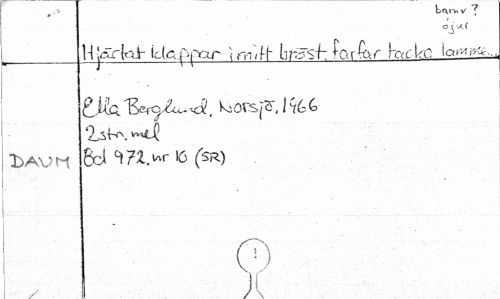 barnv?
djur
Hjärtat klappar i mitt bröst, farfar tacka lamme...
Ella Berglund, Norsjö, 1966
2 str. mel
DAUM Bd 972. nr 10 (SR)